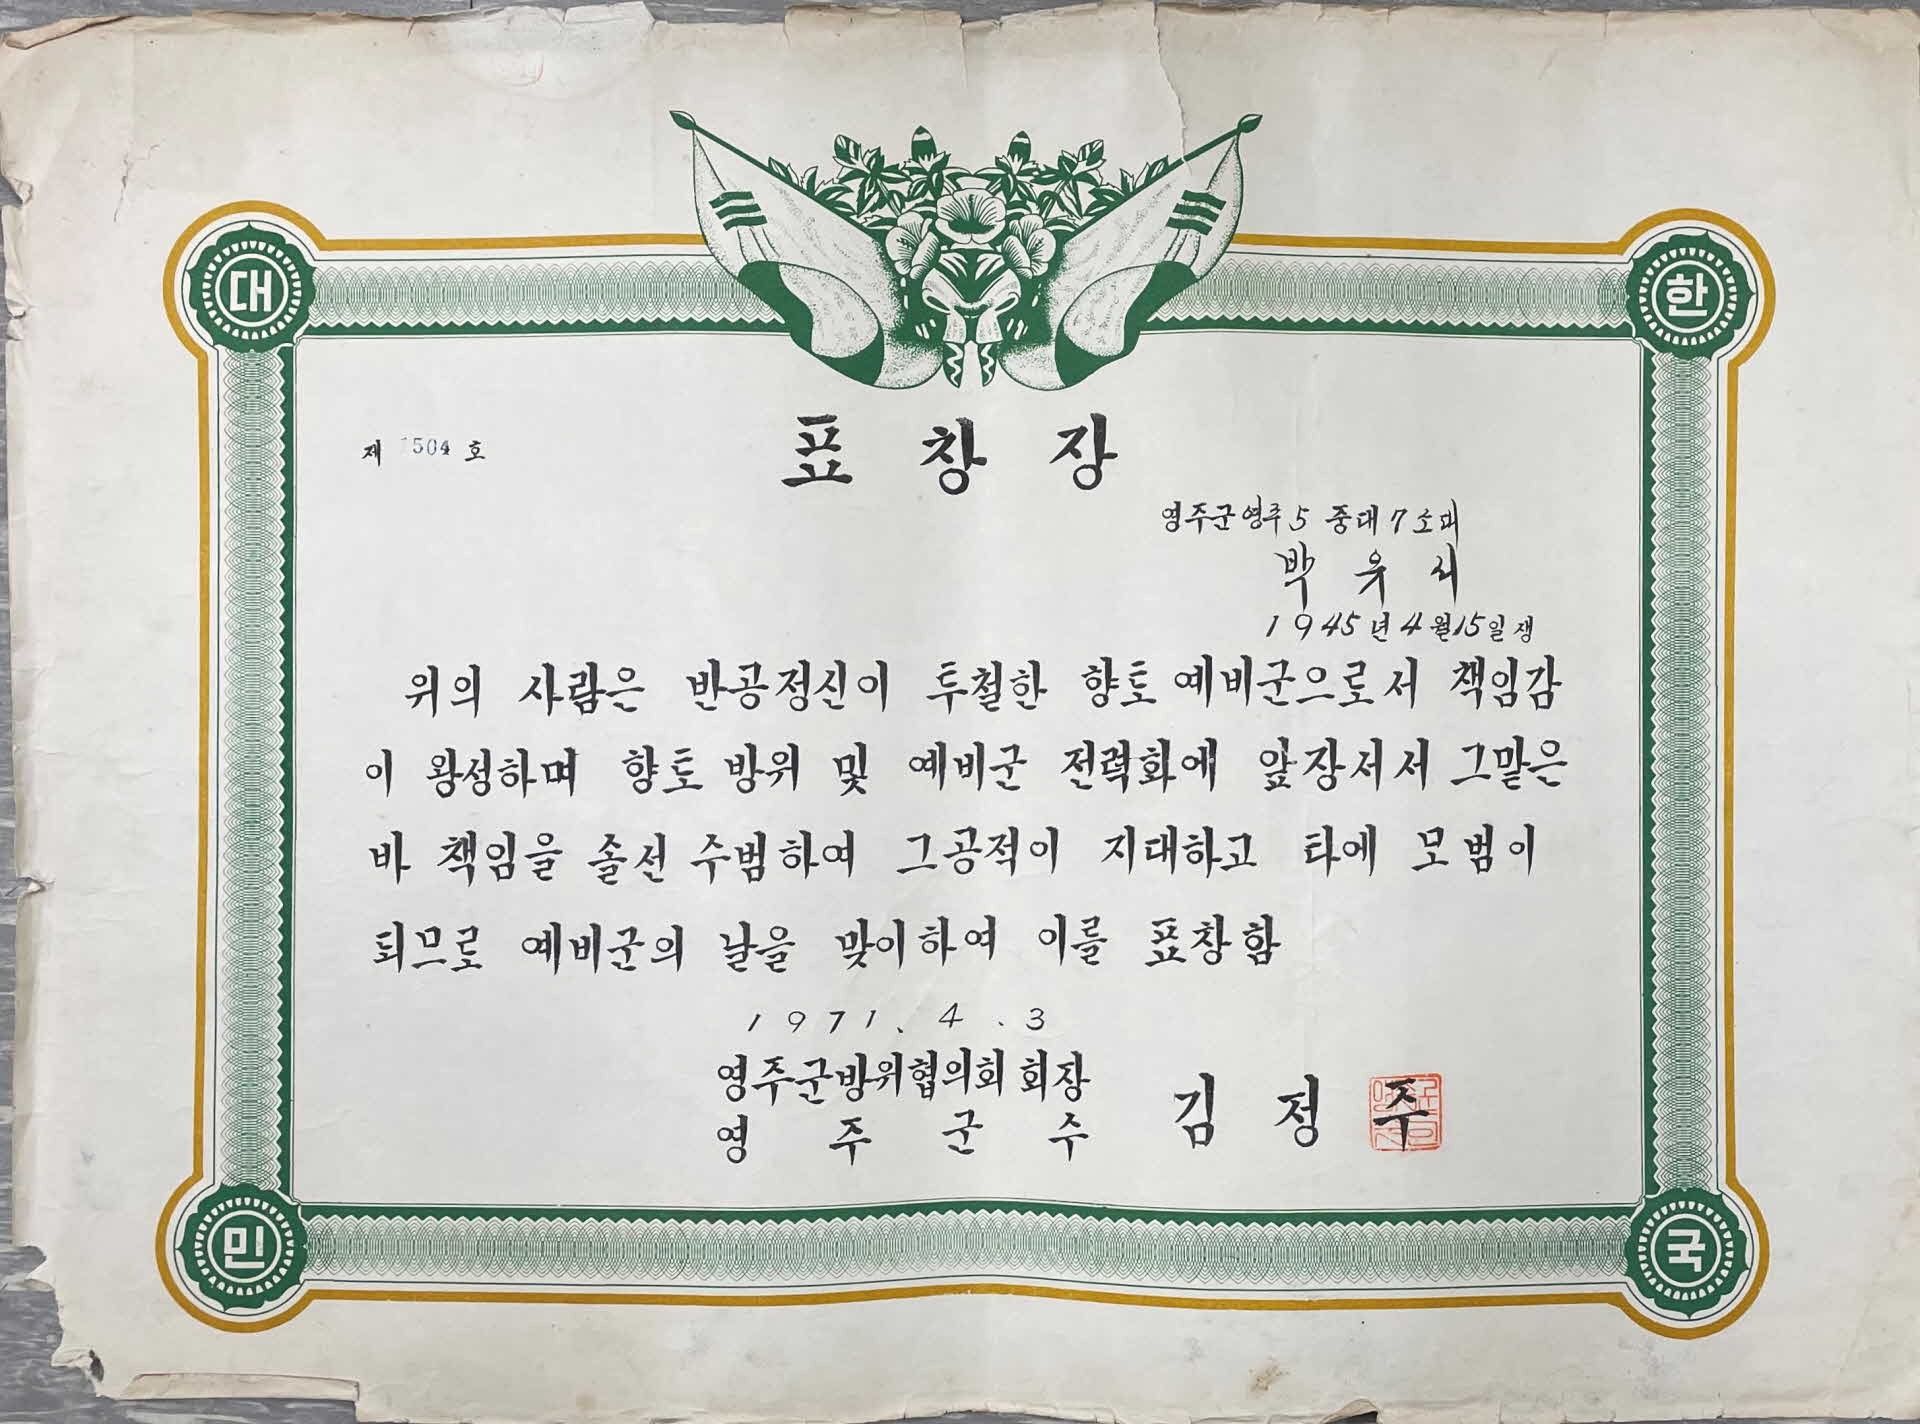 대 한
제 1504 호
표 창 장
영주군 영주 5 중대 7 소대
박 유 서
1945년 4월 15일생
위의 사람은 반공정신이 투철한 향토 예비군으로서 책임감
이 왕성하며 향토 방위 및 예비군 전력화에 앞장서서 그맡은
바 책임을 솔선 수범하여 그공적이 지대하고 타에 모범이
되므로 예비군의 날을 맞이하여 이를 표창함
1971. 4. 3
영주군방위협의회 회장
영 주 군 수 김 정 주
민 국